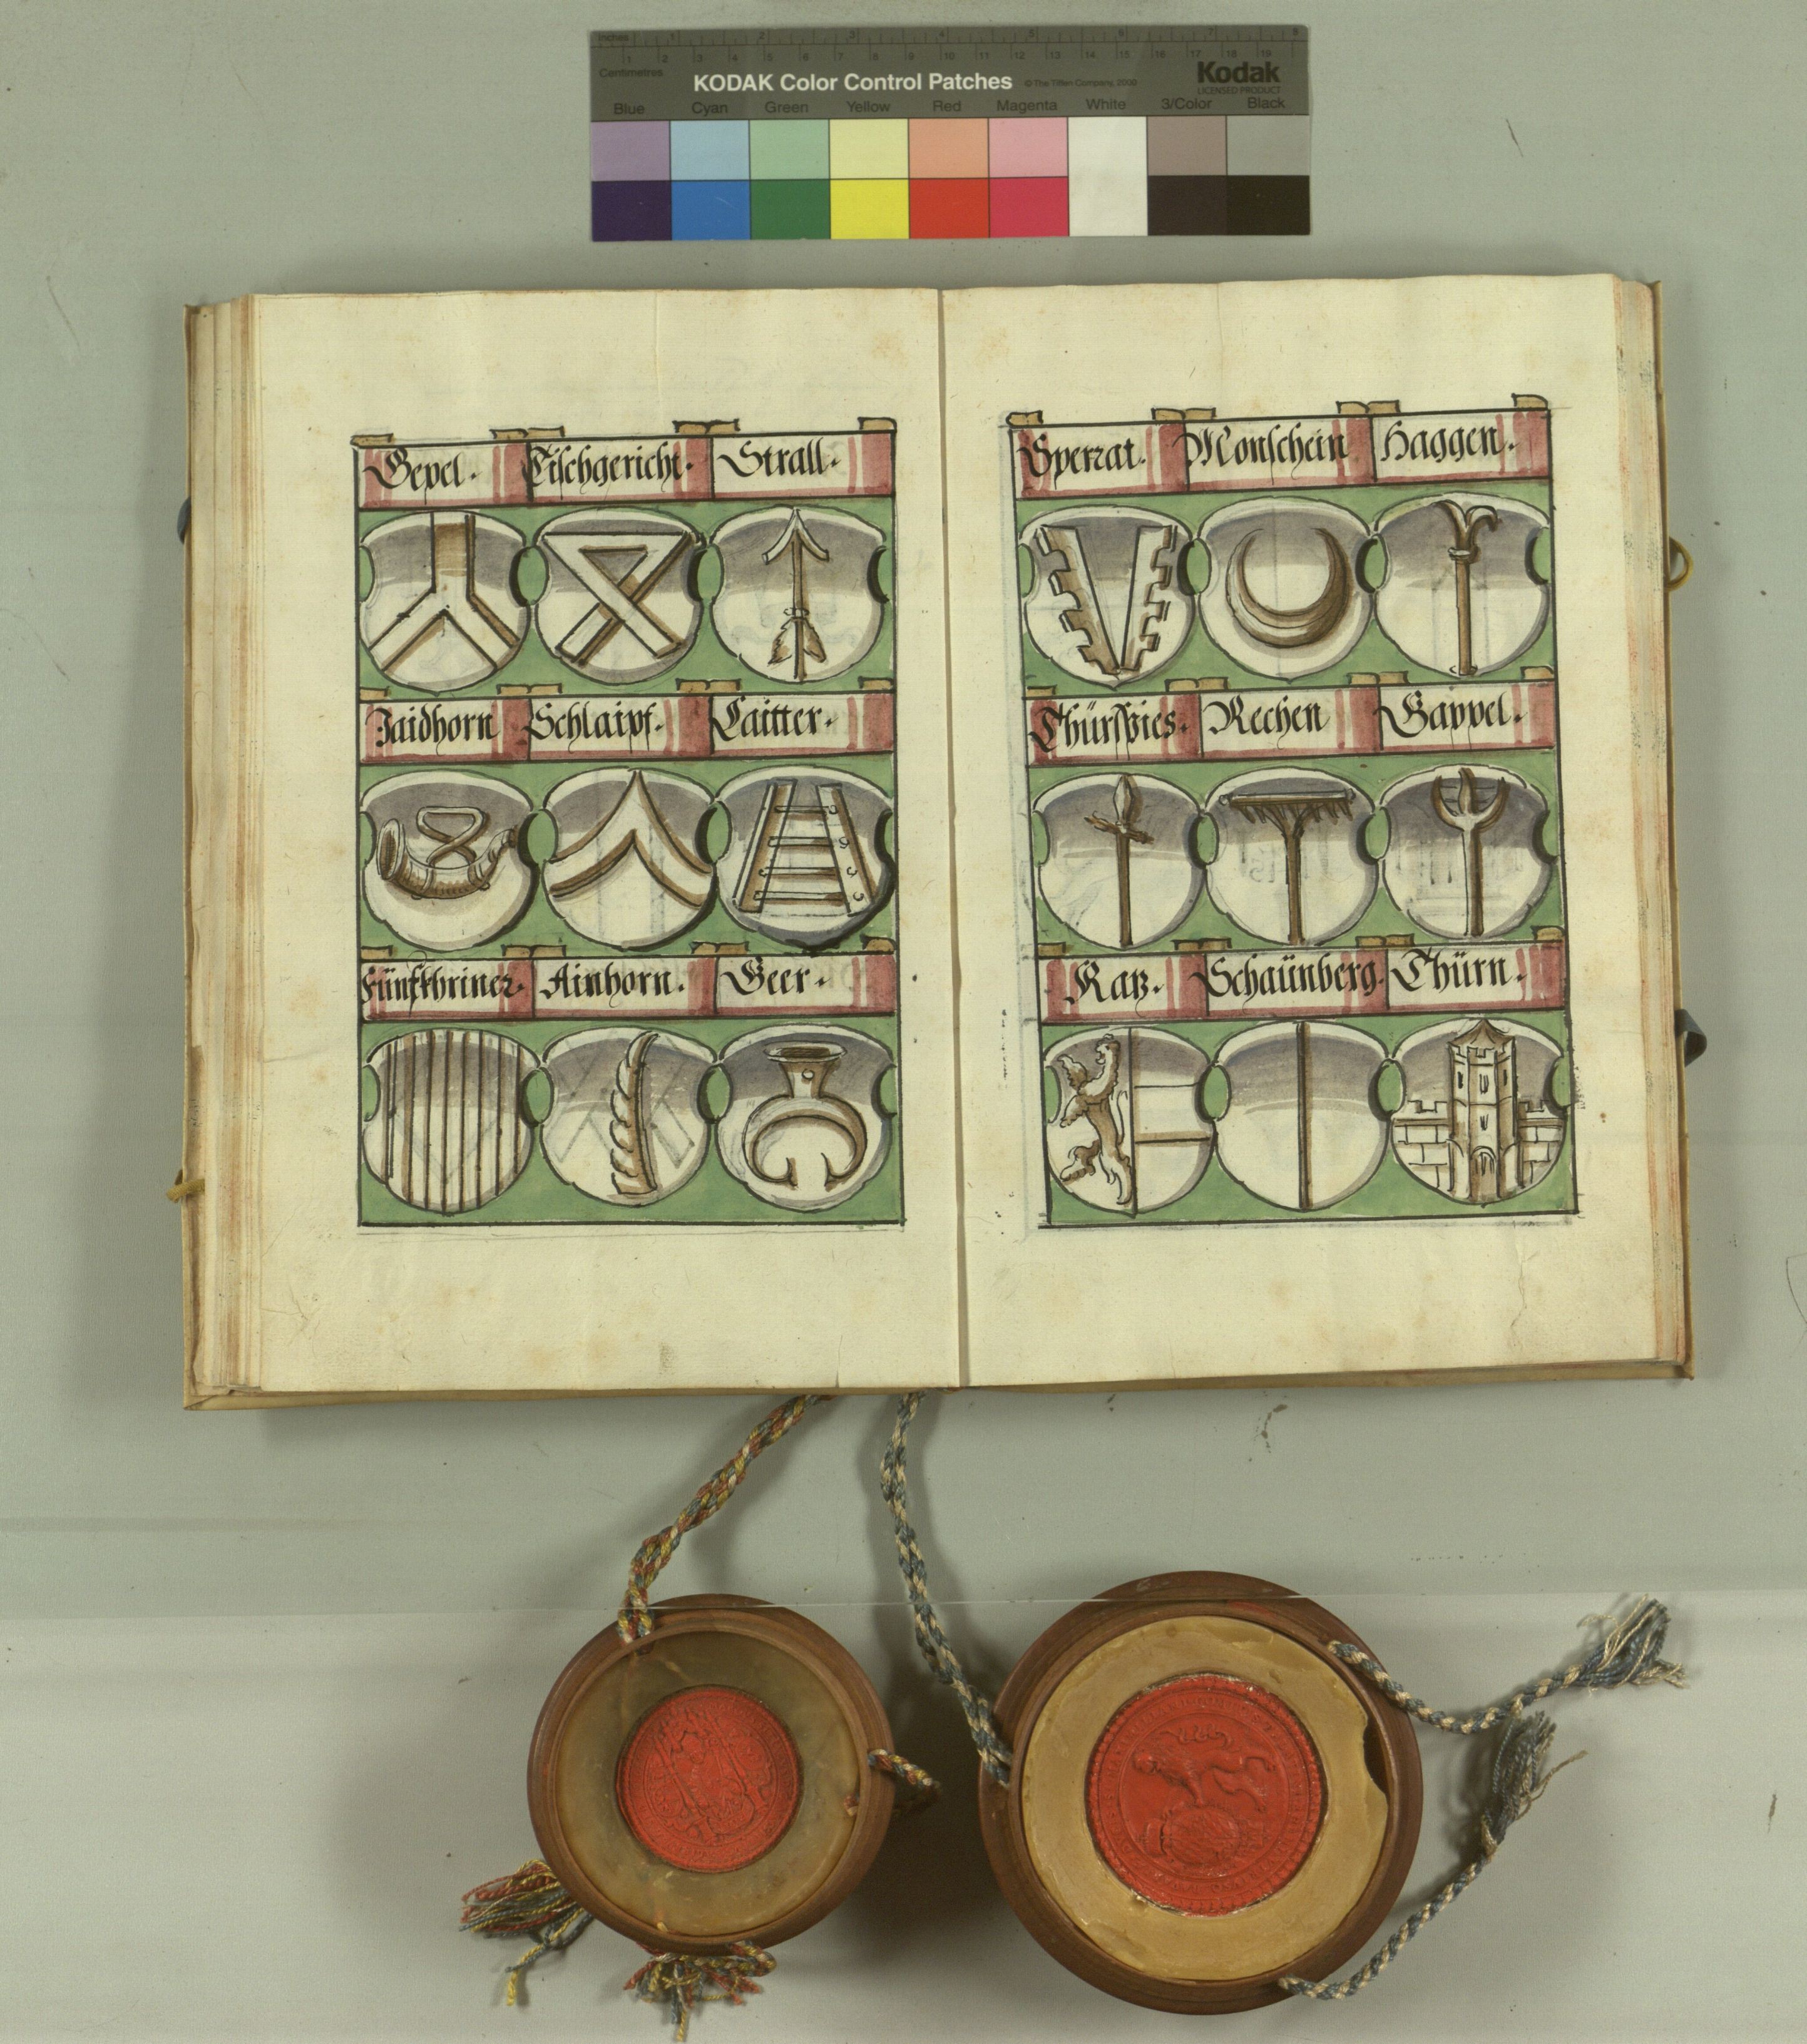 Inches 1 2 3 4 5 6 7 8
Centimetres 1 2 3 4 5 6 7 8 9 10 11 12 13 14 15 16 17 18 19
KODAK Color Control Patches © The Tiffen Company, 2000 Kodak
LICENSED PRODUCT
Blue Cyan Green Yellow Red Magenta White 3/Color Black
Gepel. Tischgericht. Strall.
Jaidhorn Schlaipf. Laitter.
Fünfkhriner. Ainhorn. Geer.
Sperrat. Monschein Haggen.
Thürspies. Rechen Gappel.
Kaz. Schaünberg. Thürn.